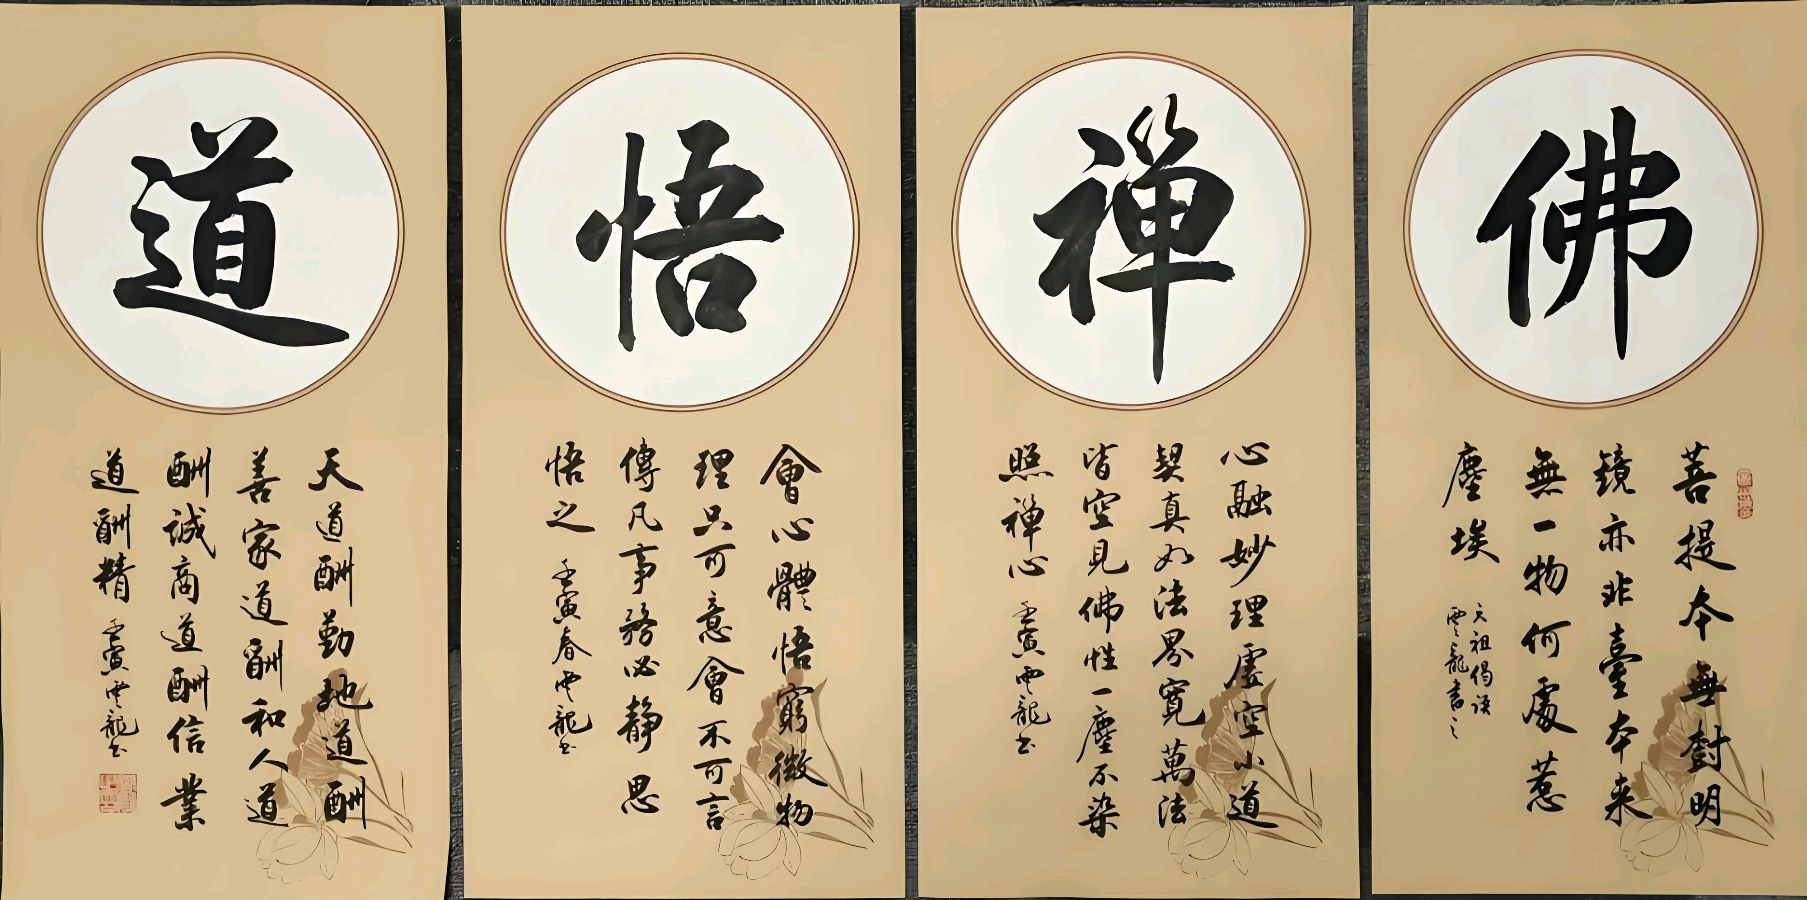 佛
菩提本無樹明
鏡亦非臺本来
無一物何處惹
塵埃
六祖偈语
雲龍書之
禪
心融妙理虚空小道
契真如法界寬萬法
皆空見佛性一塵不染
照禪心 壬寅雲龍书
悟
會心體悟窮微物
理只可意會不可言
傳凡事務必静思
悟之 壬寅春雲龍书
道
天道酬勤地道酬
善家道酬和人道
酬誠商道酬信業
道酬精 壬寅雲龍书